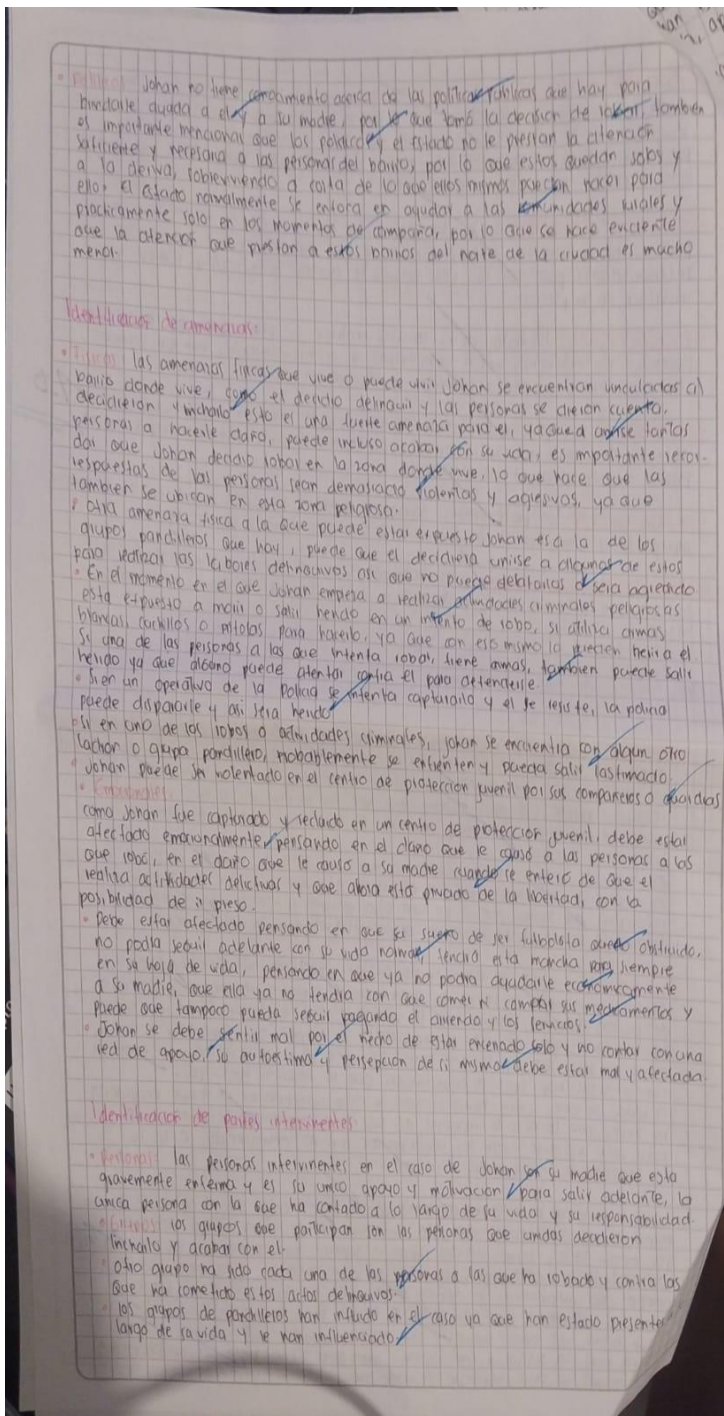 • Politicos Johan no tiene conocimiento acerca de las políticas públicas que hay para
brindarle ayuda a el y a su madre, por lo que tomó la decision de robar, tambien
es importante mencionar que los politicos y el estado no le prestan la atencion
suficiente y necesaria a las personas del barrio, por lo que estos quedan solos y
a la deriva, sobreviviendo a costa de lo que ellos mismos puedan hacer para
ello, el estado normalmente se enfoca en ayudar a las comunidades rurales y
practicamente solo en los momentos de campaña, por lo que se hace evidente
que la atencion que prestan a estos barrios del norte de la ciudad es mucho
menor.
Identificacion de amenazas:
• Fisicas las amenazas fisicas que vive o puede vivir Johan se encuentran vinculadas al
barrio donde vive, como el decidio delinquir y las personas se dieron cuenta,
decidieron lincharlo esto es una fuerte amenaza para el, ya que a unirse tantas
personas a hacerle daño, puede incluso acabar con su vida, es importante recor-
dar que Johan decidio robar en la zona donde vive, lo que hace que las
respuestas de las personas sean demasiado violentas y agresivas, ya que
tambien se ubican en esta zona peligrosa.
• Otra amenaza fisica a la que puede estar expuesto Johan es a la de los
grupos pandilleros que hay, puede que el decidiera unirse a algunos de estos
para realizar las labores delincuivos asi que no puede debitarlos o seria agredido
• En el momento en el que Johan empieza a realizar actividades criminales peligrosas
está expuesto a morir o salir herido en un intento de robo, si utiliza armas
blancas, cuchillos o pistolas para hacerlo, ya que con eso mismo lo pueden herir a el
Si una de las personas a las que intenta robar, tiene armas, tambien puede salir
herido ya que alguno puede atentar contra el para defenderse
• Si en un operativo de la policia se intenta capturarlo y el se resiste, la policia
puede dispararle y asi sera herido
• Si en uno de los robos o actividades criminales, johan se encuentra con algun otro
lachon o grupo pandillero, probablemente se enfrenten y pueda salir lastimado.
• Johan puede ser violentado en el centro de proteccion juvenil por sus compañeros o guardias
• Emocionales
como Johan fue capturado y recluido en un centro de protección juvenil, debe estar
afectado emocionalmente, pensando en el daño que le causó a las personas a las
que robó, en el daño que le causo a su madre cuando se enteró de que el
realiza actividades delictivas y que ahora está privado de la libertad, con la
posibilidad de ir preso.
• Debe estar afectado pensando en que su sueño de ser futbolista quedó obstruido,
no podía seguir adelante con su vida normal teniendo esta mancha para siempre
en su hoja de vida, pensando en que ya no podra ayudarle economicamente
a su madre, que ella ya no tendria con que comer ni comprar sus medicamentos y
puede que tampoco pueda seguir pagando el arriendo y los servicios.
• Johan se debe sentir mal por el hecho de estar encerrado solo y no contar con una
red de apoyo, su autoestima y persepcion de si mismo debe estar mal y afectada.
Identificacion de partes intervinentes
• Personas: las personas intervinentes en el caso de Johan son su madre que esta
gravemente enferma y es su unico apoyo y motivacion para salir adelante, la
unica persona con la que ha contado a lo largo de su vida y su responsabilidad.
• Grupos los grupos que participan son las personas que unidas decidieron
lincharlo y acabar con el.
• otro grupo ha sido cada una de las personas a las que ha robado y contra las
que ha cometido estos actos delincuivos.
• los grupos de pandilleros han influido en el caso ya que han estado presentes
largo de su vida y le han influenciado